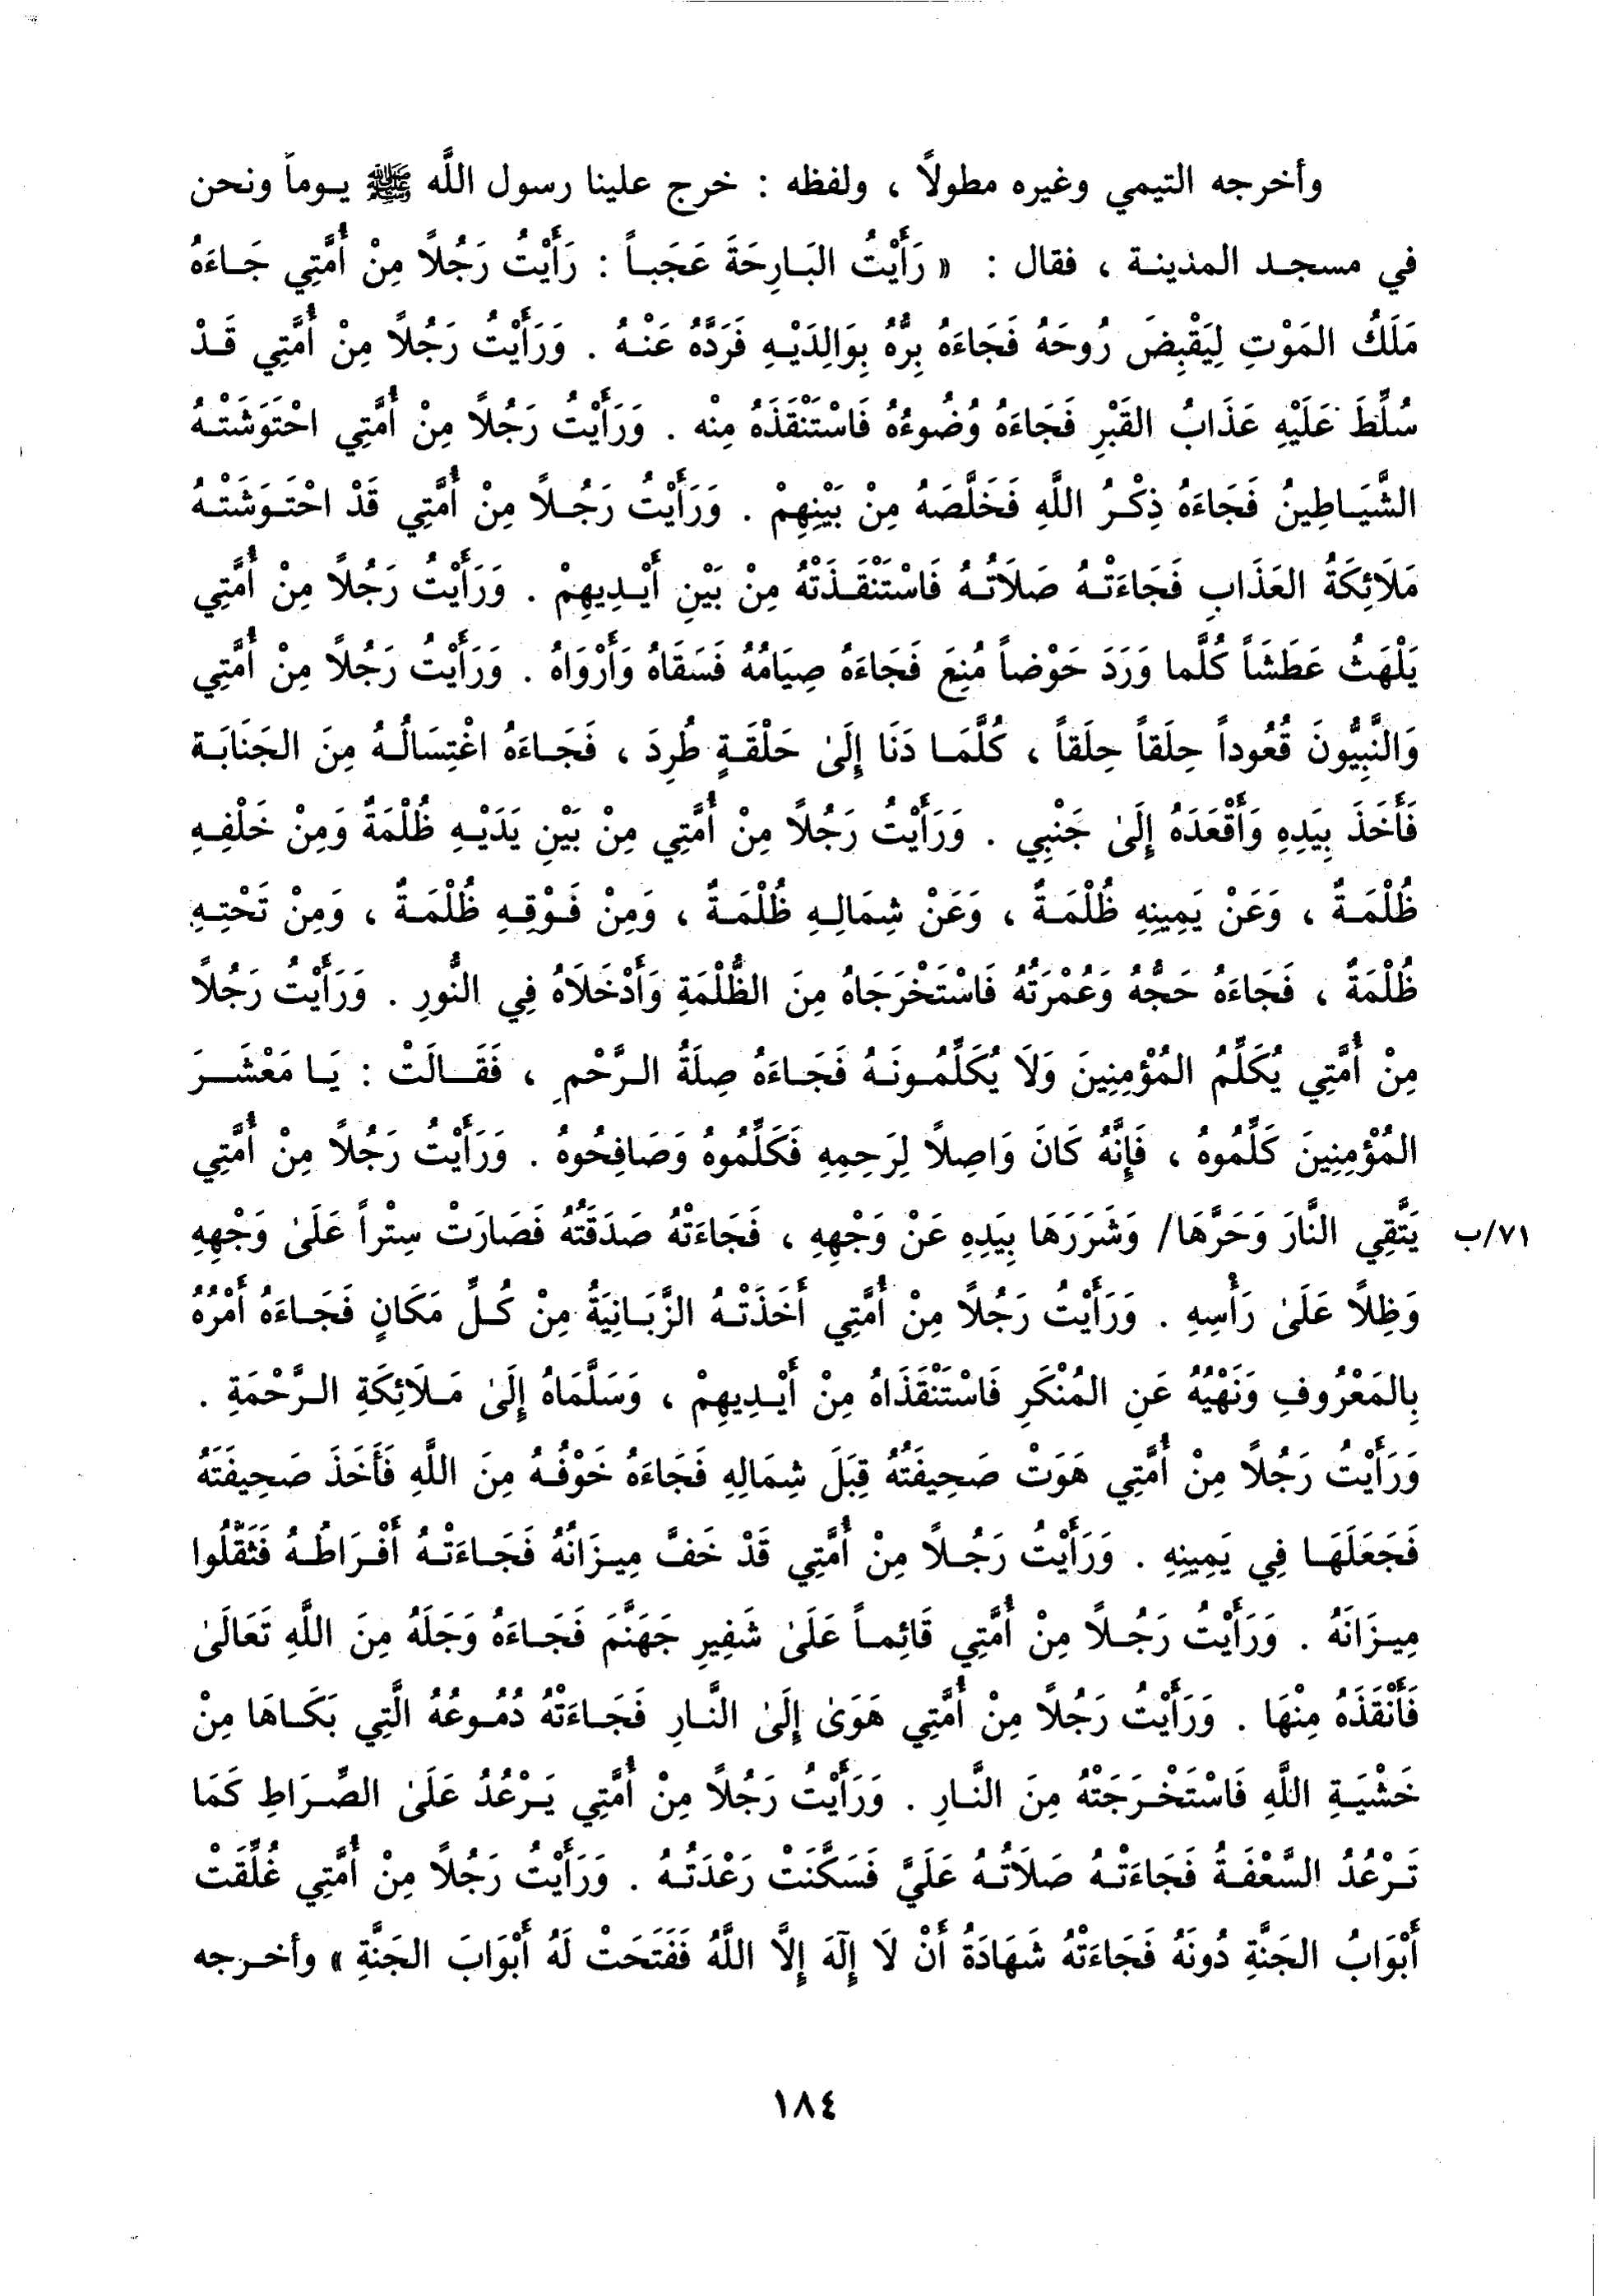 وأخرجه التيمي وغيره مطولاً ، ولفظه : خرج علينا رسول اللَّه ﷺ يـوماً ونحن
في مسجـد المدينـة ، فقال : « رَأَيْتُ البَـارِحَةَ عَجَبـاً : رَأَيْتُ رَجُلاً مِنْ أُمَّتِي جَـاءَهُ
مَلَكُ المَوْتِ لِيَقْبِضَ رُوحَهُ فَجَاءَهُ بِرُّهُ بِوَالِدَيْـهِ فَرَدَّهُ عَنْـهُ . وَرَأَيْتُ رَجُلاً مِنْ أُمَّتِي قَـدْ
سُلِّطَ عَلَيْهِ عَذَابُ القَبْرِ فَجَاءَهُ وُضُوءُهُ فَاسْتَنْقَذَهُ مِنْه . وَرَأَيْتُ رَجُلاً مِنْ أُمَّتِي احْتَوَشَتْـهُ
الشَّيَـاطِينُ فَجَاءَهُ ذِكْـرُ اللَّهِ فَخَلَّصَهُ مِنْ بَيْنِهِمْ . وَرَأَيْتُ رَجُـلاً مِنْ أُمَّتِي قَدْ احْتَـوَشَتْـهُ
مَلَائِكَةُ العَذَابِ فَجَاءَتْـهُ صَلَاتُـهُ فَاسْتَنْقَـذَتْهُ مِنْ بَيْنِ أَيْـدِيهِمْ . وَرَأَيْتُ رَجُلاً مِنْ أُمَّتِي
يَلْهَثُ عَطَشَاً كُلَّما وَرَدَ حَوْضاً مُنِعَ فَجَاءَهُ صِيَامُهُ فَسَقَاهُ وَأَرْوَاهُ . وَرَأَيْتُ رَجُلاً مِنْ أُمَّتِي
وَالنَّبِيُّونَ قُعُوداً حِلَقاً حِلَقاً ، كُلَّمَـا دَنَا إِلَىٰ حَلْقَـةٍ طُرِدَ ، فَجَـاءَهُ اغْتِسَالُـهُ مِنَ الجَنَابَـة
فَأَخَذَ بِيَدِهِ وَأَقْعَدَهُ إِلَىٰ جَنْبِي . وَرَأَيْتُ رَجُلاً مِنْ أُمَّتِي مِنْ بَيْنِ يَدَيْـهِ ظُلْمَةٌ وَمِنْ خَلْفِـهِ
ظُلْمَـةٌ ، وَعَنْ يَمِينِهِ ظُلْمَـةٌ ، وَعَنْ شِمَالِـهِ ظُلْمَـةٌ ، وَمِنْ فَـوْقِـهِ ظُلْمَـةٌ ، وَمِنْ تَحْتِـهِ
ظُلْمَةٌ ، فَجَاءَهُ حَجُّهُ وَعُمْرَتُهُ فَاسْتَخْرَجَاهُ مِنَ الظُّلْمَةِ وَأَدْخَلَاهُ فِي النُّورِ . وَرَأَيْتُ رَجُلاً
مِنْ أُمَّتِي يُكَلِّمُ المُؤْمِنِينَ وَلَا يُكَلِّمُـونَـهُ فَجَـاءَهُ صِلَةُ الـرَّحْمِ ، فَقَـالَتْ : يَـا مَعْشَـرَ
المُؤْمِنِينَ كَلِّمُوهُ ، فَإِنَّهُ كَانَ وَاصِلاً لِرَحِمِهِ فَكَلِّمُوهُ وَصَافِحُوهُ . وَرَأَيْتُ رَجُلاً مِنْ أُمَّتِي
يَتَّقِي النَّارَ وَحَرَّهَا/ وَشَرَرَهَا بِيَدِهِ عَنْ وَجْهِهِ ، فَجَاءَتْهُ صَدَقَتُهُ فَصَارَتْ سِتْراً عَلَىٰ وَجْهِهِ ٧١/ب
وَظِلاً عَلَىٰ رَأْسِهِ . وَرَأَيْتُ رَجُلاً مِنْ أُمَّتِي أَخَذَتْـهُ الزَّبَـانِيَةُ مِنْ كُـلِّ مَكَانٍ فَجَـاءَهُ أَمْرُهُ
بِالمَعْرُوفِ وَنَهْيُهُ عَنِ المُنْكَرِ فَاسْتَنْقَذَاهُ مِنْ أَيْـدِيهِمْ ، وَسَلَّمَاهُ إِلَىٰ مَـلَائِكَةِ الـرَّحْمَةِ .
وَرَأَيْتُ رَجُلاً مِنْ أُمَّتِي هَوَتْ صَحِيفَتُهُ قِبَلَ شِمَالِهِ فَجَاءَهُ خَوْفُـهُ مِنَ اللَّهِ فَأَخَذَ صَحِيفَتَهُ
فَجَعَلَهَـا فِي يَمِينِهِ . وَرَأَيْتُ رَجُـلاً مِنْ أُمَّتِي قَدْ خَفَّ مِيـزَانُهُ فَجَـاءَتْـهُ أَفْـرَاطُـهُ فَثَقَّلُوا
مِيـزَانَهُ . وَرَأَيْتُ رَجُـلاً مِنْ أُمَّتِي قَائِمـاً عَلَىٰ شَفِيرِ جَهَنَّمَ فَجَـاءَهُ وَجَلَهُ مِنَ اللَّهِ تَعَالَىٰ
فَأَنْقَذَهُ مِنْهَا . وَرَأَيْتُ رَجُلاً مِنْ أُمَّتِي هَوَىٰ إِلَىٰ النَّـارِ فَجَـاءَتْهُ دُمُـوعُهُ الَّتِي بَكَـاهَا مِنْ
خَشْيَـةِ اللَّهِ فَاسْتَخْـرَجَتْهُ مِنَ النَّـارِ . وَرَأَيْتُ رَجُلاً مِنْ أُمَّتِي يَـرْعُدُ عَلَىٰ الصِّـرَاطِ كَمَا
تَـرْعُدُ السَّعْفَـةُ فَجَاءَتْـهُ صَلَاتُـهُ عَلَيَّ فَسَكَّنَتْ رَعْدَتُـهُ . وَرَأَيْتُ رَجُلاً مِنْ أُمَّتِي غُلِّقَتْ
أَبْوَابُ الجَنَّةِ دُونَهُ فَجَاءَتْهُ شَهَادَةُ أَنْ لَا إِلَهَ إِلَّا اللَّهُ فَفَتَحَتْ لَهُ أَبْوَابَ الجَنَّةِ » وأخـرجه
١٨٤